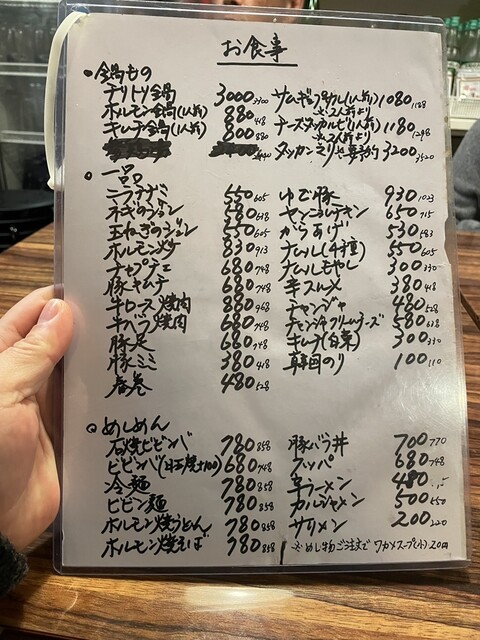 お食事
・鍋もの
ナリトリ鍋 3000 3300
ホルモン鍋(1人前) 880
キムチ鍋(1人前) 800 880
サムギョプサル(1人前) 1080 1188
※2人前より
チーズタッカルビ(1人前) 1180 1298
※2人前より
タッカンマリ 3200 3520
・一品
ニラチヂミ 550 605
ネギのジョン 580 638
玉ねぎのジョン 550 605
ホルモン炒 830 913
チャプチェ 680 748
豚キムチ 680 748
牛ロース焼肉 880 968
牛バラ焼肉 680 748
豚足 680 748
豚ミミ 380 418
春巻 480 528
ゆで豚 930 1023
ヤンニョムチキン 650 715
からあげ 530 583
ナムル(4種) 550 605
ナムルもやし 300 330
キスルメ 380 418
チャンジャ 480 528
チャンジャクリームチーズ 580 638
キムチ(白菜) 300 330
韓国のり 100 110
・めしめん
石焼ビビンバ 780 858
ビビンバ(石焼+100) 680 748
冷麺 780 858
ビビン麺 780 858
ホルモン焼うどん 780 858
ホルモン焼そば 780 858
豚バラ丼 700 770
クッパ 680 748
辛ラーメン 480
カルジャメン 500 550
サリメン 200 220
※めし物ご注文で ワカメスープ(小)20円